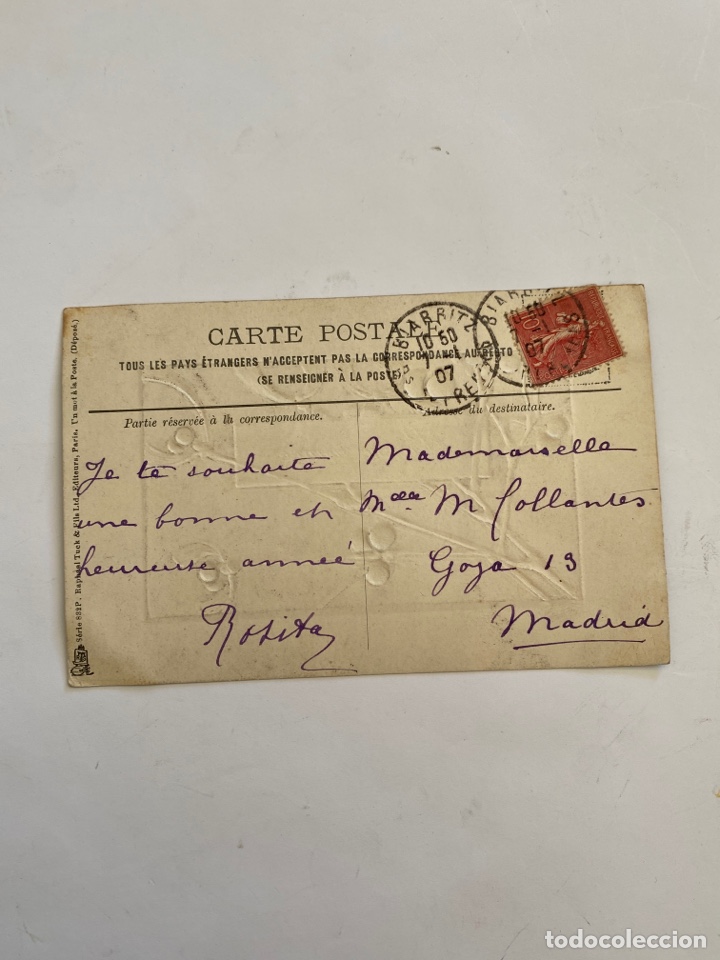 CARTE POSTALE
TOUS LES PAYS ÉTRANGERS N'ACCEPTENT PAS LA CORRESPONDANCE AU RECTO
(SE RENSEIGNER À LA POSTE)
BIARRITZ
10 50
07
BIARRITZ
10 50
07
Partie réservée à la correspondance.
Je te souhaite
une bonne et
heureuse année
Rosita
Adresse du destinataire.
Mademoiselle
M Collantes
Goya 13
Madrid
Série 892P. Raphael Tuck & Fils Ltd. Editeurs, Paris. Un mot à la Poste. (Déposé.)
todocoleccion